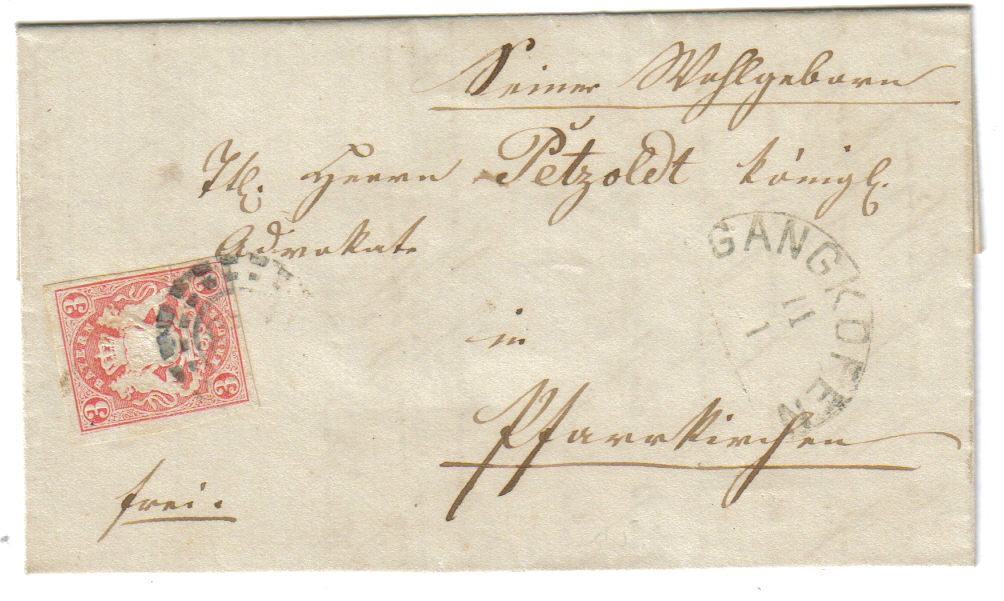 Seiner Wohlgeborn
Tl. Herrn Petzoldt königl.
Advokat
in
Pfarrkirchen
frei.
GANGKOFEN
11
1
3 3
BAYERN
3 3